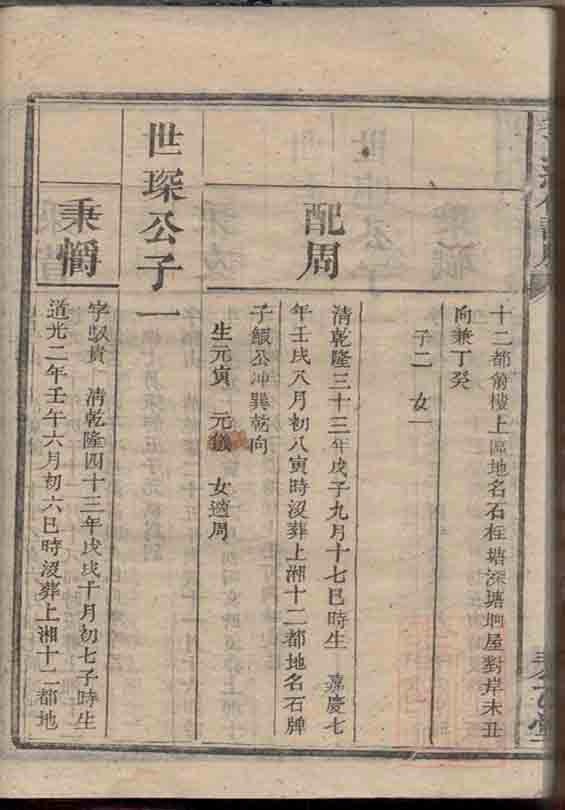 十二都翁樓上區地名石柱塘深塘坰屋對岸未丑
向兼丁癸
子二 女一
配周
清乾隆三十三年戊子九月十七巳時生 嘉慶七
年壬戌八月初八寅時沒葬上湘十二都地名石牌
子鰕公冲巽乾向
生元寅 元儀 女適周
世琛公子一
秉懤
字馭貴 清乾隆四十三年戊戌十月初七子時生
道光二年壬午六月初六巳時沒葬上湘十二都地